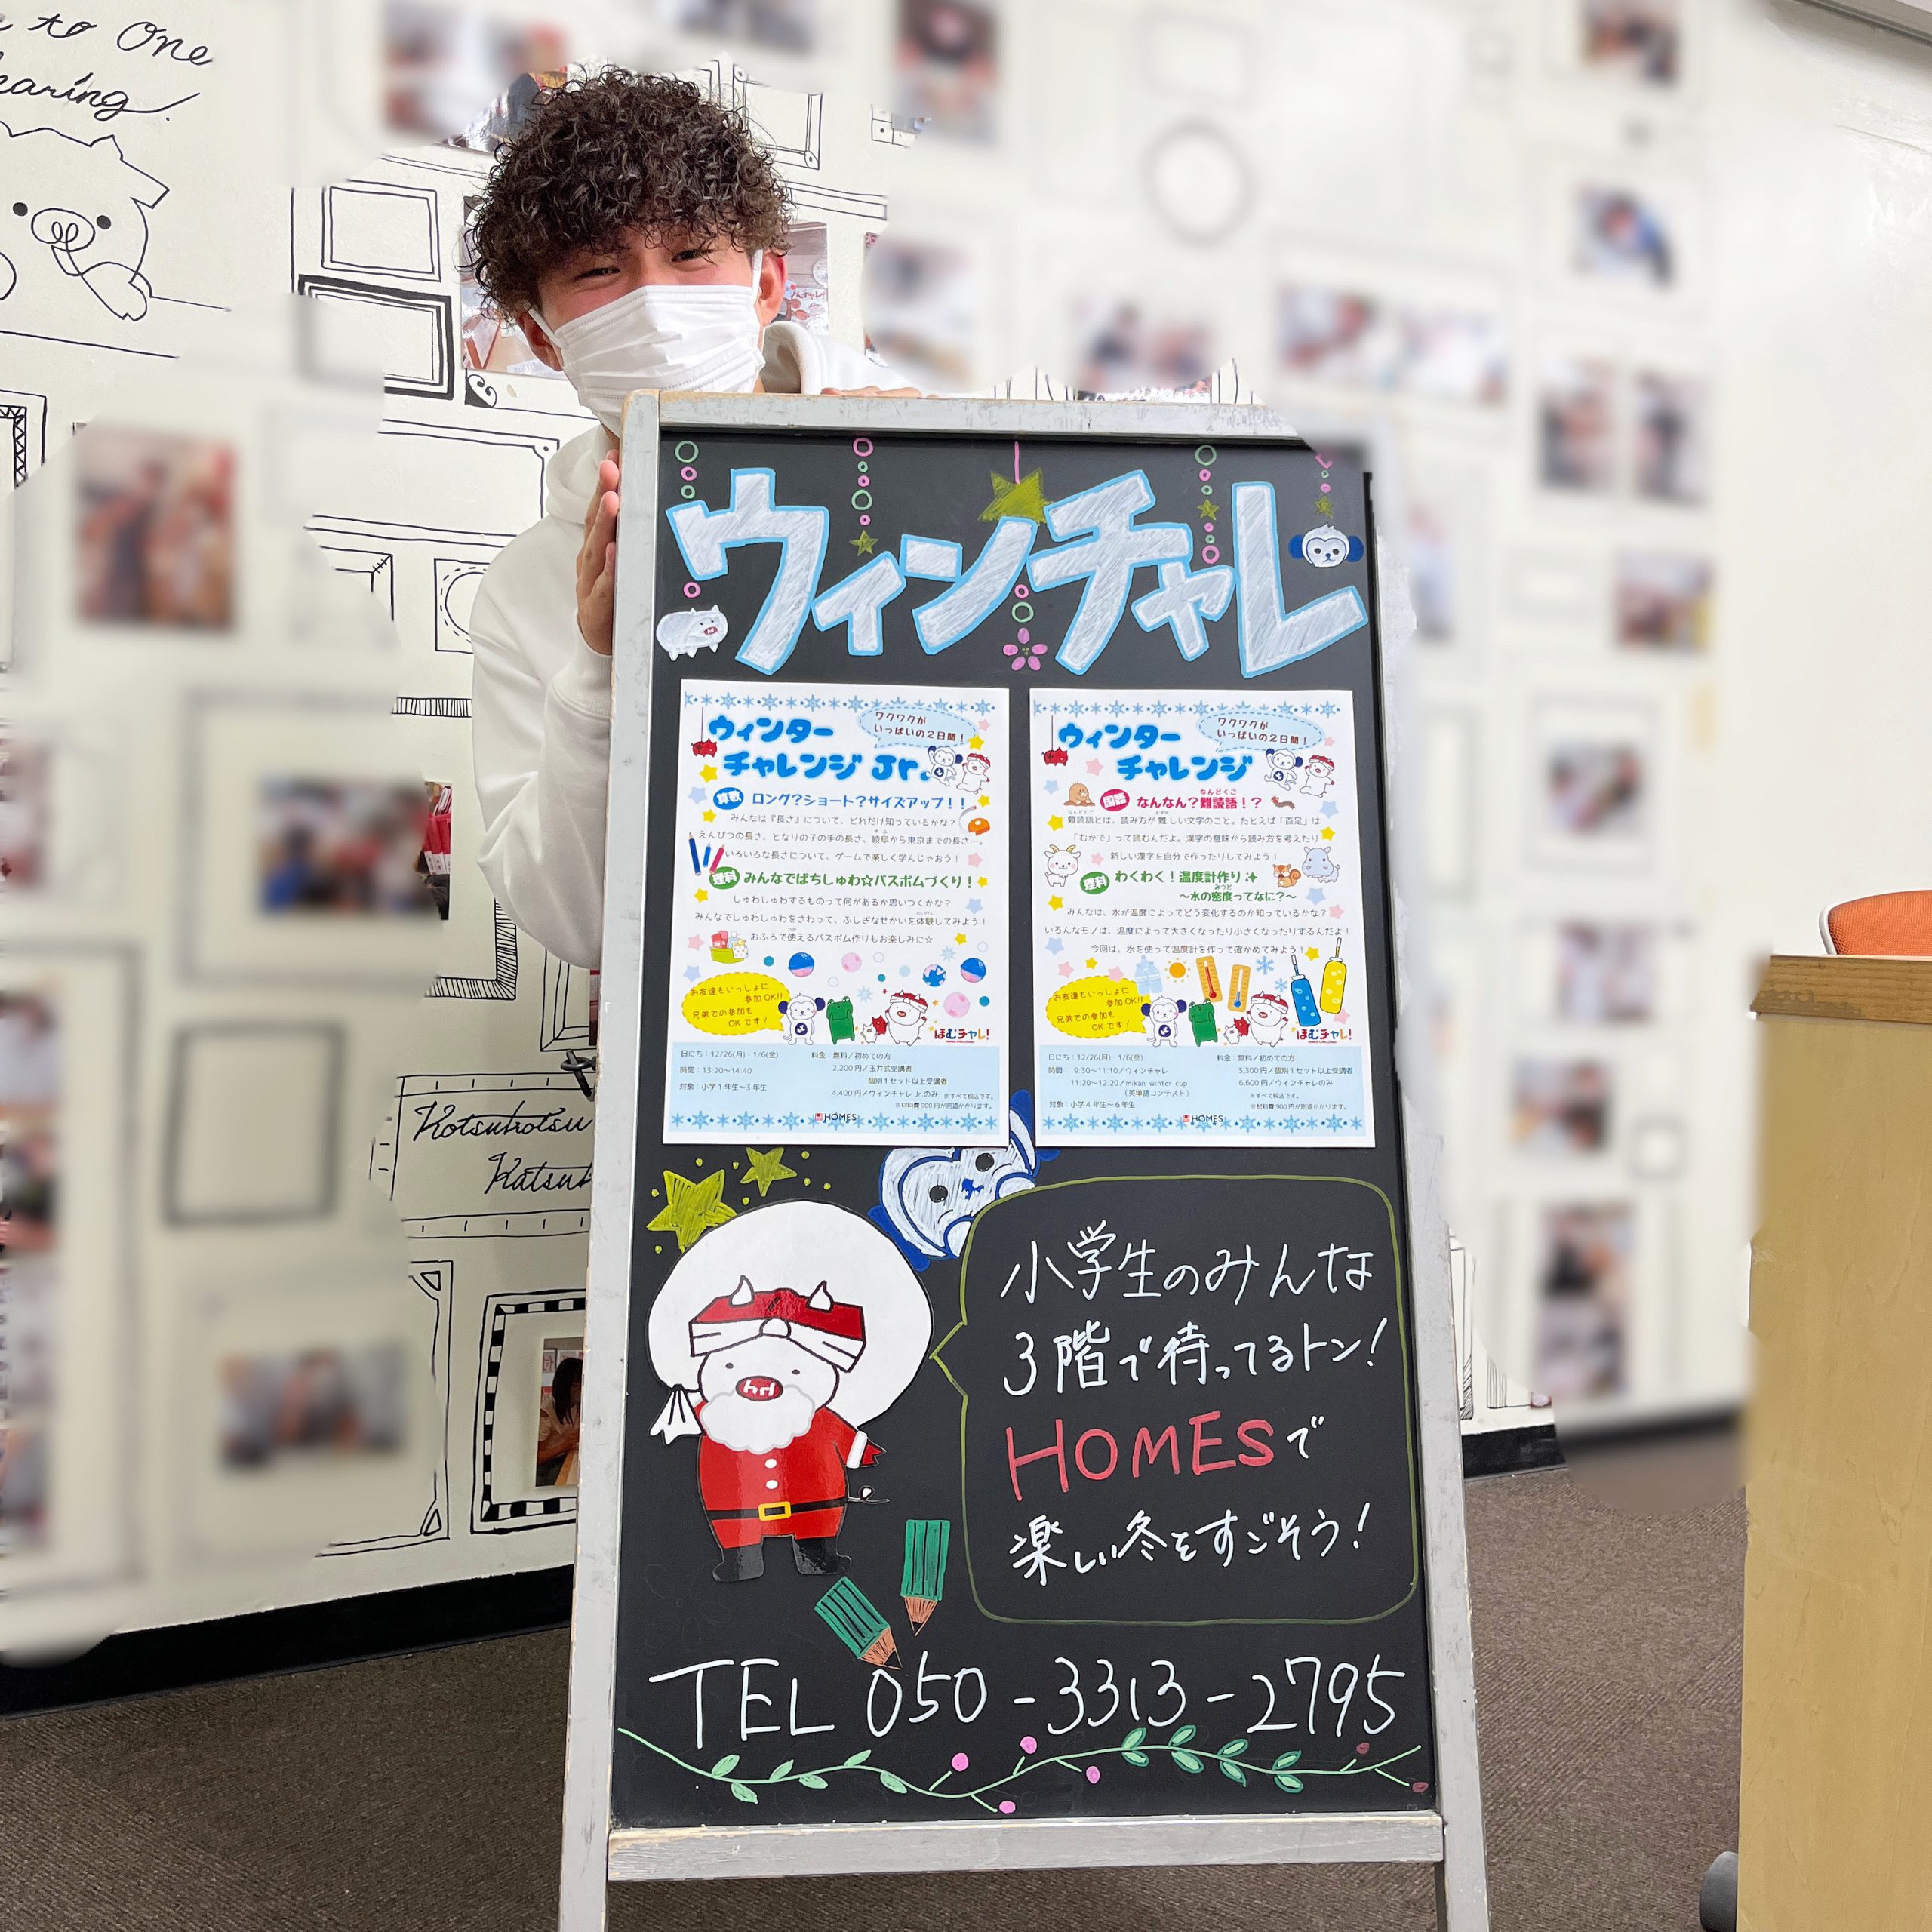 to One
haring!
ウィンチャレ
ウィンター
チャレンジ Jr.
ワクワクが
いっぱいの2日間！
算数 ロング？ショート？サイズアップ！！
みんなは『長さ』について、どれだけ知っているかな？
えんぴつの長さ、となりの子の手の長さ、岐阜から東京までの長さ…。
いろいろな長さについて、ゲームで楽しく学んじゃおう！
理科 みんなでぱちしゅわ☆バスボムづくり！
しゅわしゅわするものって何があるか思いつくかな？
みんなでしゅわしゅわをさわって、ふしぎなせかいを体験してみよう！
おふろで使えるバスボム作りもお楽しみに☆
お友達もいっしょに
参加OK!!
兄弟での参加も
OKです！
ほむチャレ！
日にち：12/26(月)・1/6(金)
時間：13:20～14:40
対象：小学1年生～3年生
料金：無料／初めての方
2,200円／玉井式受講者
個別1セット以上受講者
4,400円／ウィンチャレJrのみ ※すべて税込です。
※材料費900円が別途かかります。
HOMES
ウィンター
チャレンジ
ワクワクが
いっぱいの2日間！
国語 なんなん？難読語！？
難読語とは、読み方が難しい文字のこと。たとえば「百足」は
「むかで」って読むんだよ。漢字の意味から読み方を考えたり
新しい漢字を自分で作ったりしてみよう！
理科 わくわく！温度計作り
～水の密度ってなに？～
みんなは、水が温度によってどう変化するのか知っているかな？
いろんなモノは、温度によって大きくなったり小さくなったりするんだよ！
今回は、水を使って温度計を作って確かめてみよう！
お友達もいっしょに
参加OK!!
兄弟での参加も
OKです！
ほむチャレ！
日にち：12/26(月)・1/6(金)
時間： 9:30～11:10／ウィンチャレ
11:20～12:20／mikan winter cup
（英単語コンテスト）
対象：小学4年生～6年生
料金：無料／初めての方
3,300円／個別1セット以上受講者
6,600円／ウィンチャレのみ
※すべて税込です。
※材料費900円が別途かかります。
HOMES
Kotsukotsu
小学生のみんな
3階で待ってるトン！
HOMESで
楽しい冬をすごそう！
TEL 050-3313-2795